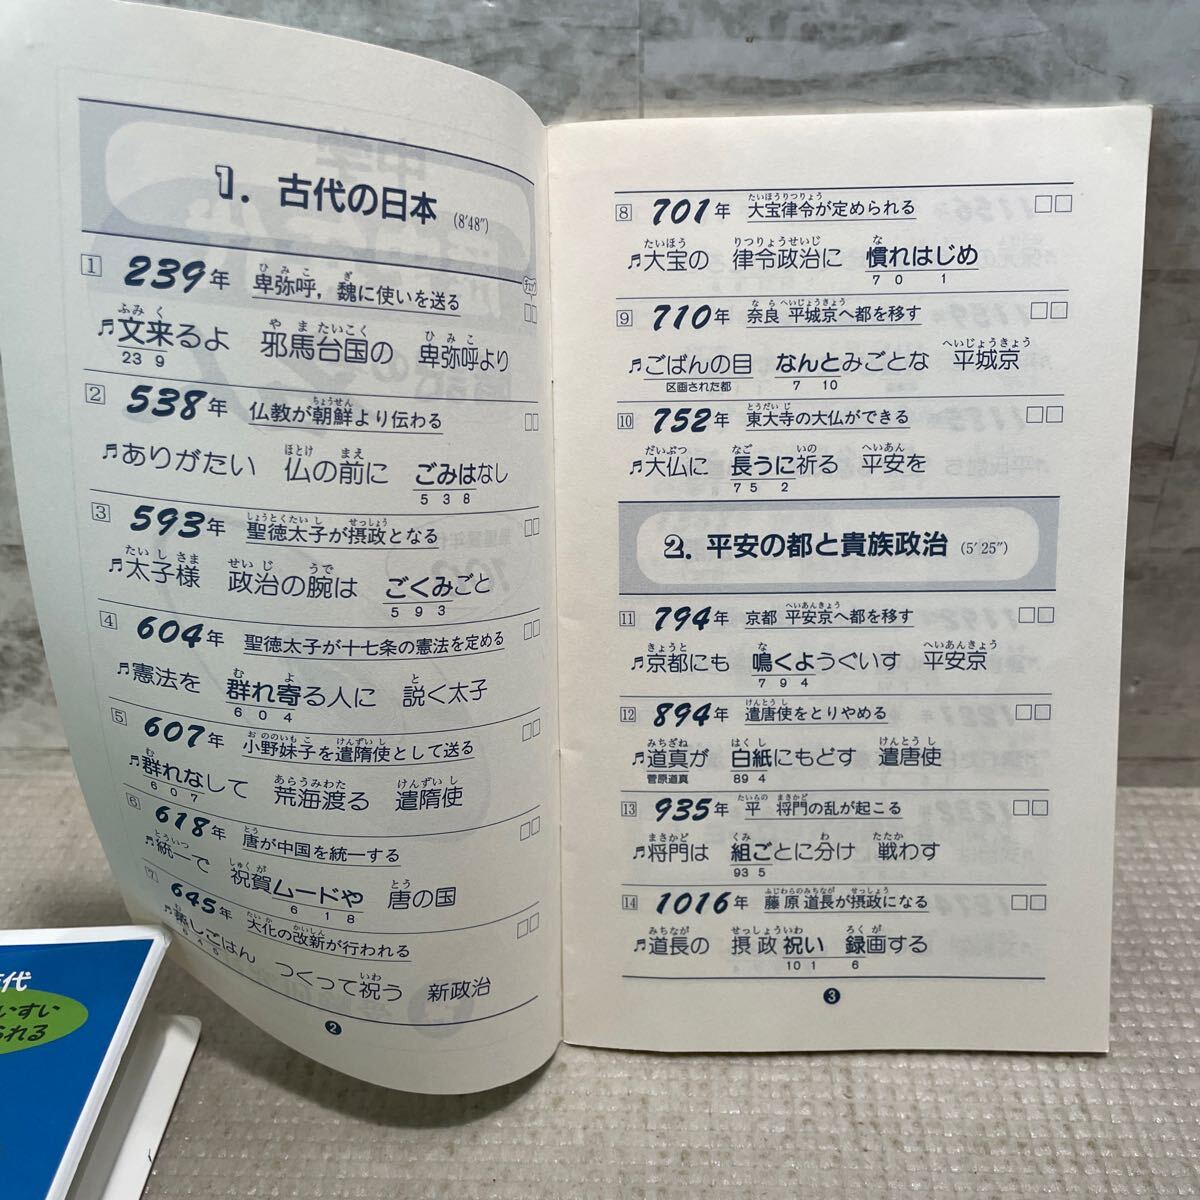 1. 古代の日本 (8'48")
1 239年 卑弥呼，魏に使いを送る
チェック
♬文来るよ 邪馬台国の 卑弥呼より
23 9
2 538年 仏教が朝鮮より伝わる
♬ありがたい 仏の前に ごみはなし
5 3 8
3 593年 聖徳太子が摂政となる
♬太子様 政治の腕は ごくみごと
5 9 3
4 604年 聖徳太子が十七条の憲法を定める
♬憲法を 群れ寄る人に 説く太子
6 0 4
5 607年 小野妹子を遣隋使として送る
♬群れなして 荒海渡る 遣隋使
6 0 7
6 618年 唐が中国を統一する
♬統一で 祝賀ムードや 唐の国
6 1 8
7 645年 大化の改新が行われる
♬蒸しごはん つくって祝う 新政治
6 4 5
2
8 701年 大宝律令が定められる
♬大宝の 律令政治に 慣れはじめ
7 0 1
9 710年 奈良 平城京へ都を移す
♬ごばんの目 なんとみごとな 平城京
区画された都 7 10
10 752年 東大寺の大仏ができる
♬大仏に 長うに祈る 平安を
75 2
2. 平安の都と貴族政治 (5'25")
11 794年 京都 平安京へ都を移す
♬京都にも 鳴くようぐいす 平安京
7 9 4
12 894年 遣唐使をとりやめる
♬道真が 白紙にもどす 遣唐使
菅原道真 89 4
13 935年 平 将門の乱が起こる
♬将門は 組ごとに分け 戦わす
93 5
14 1016年 藤原道長が摂政になる
♬道長の 摂政祝い 録画する
10 1 6
3
代
いすい
られる